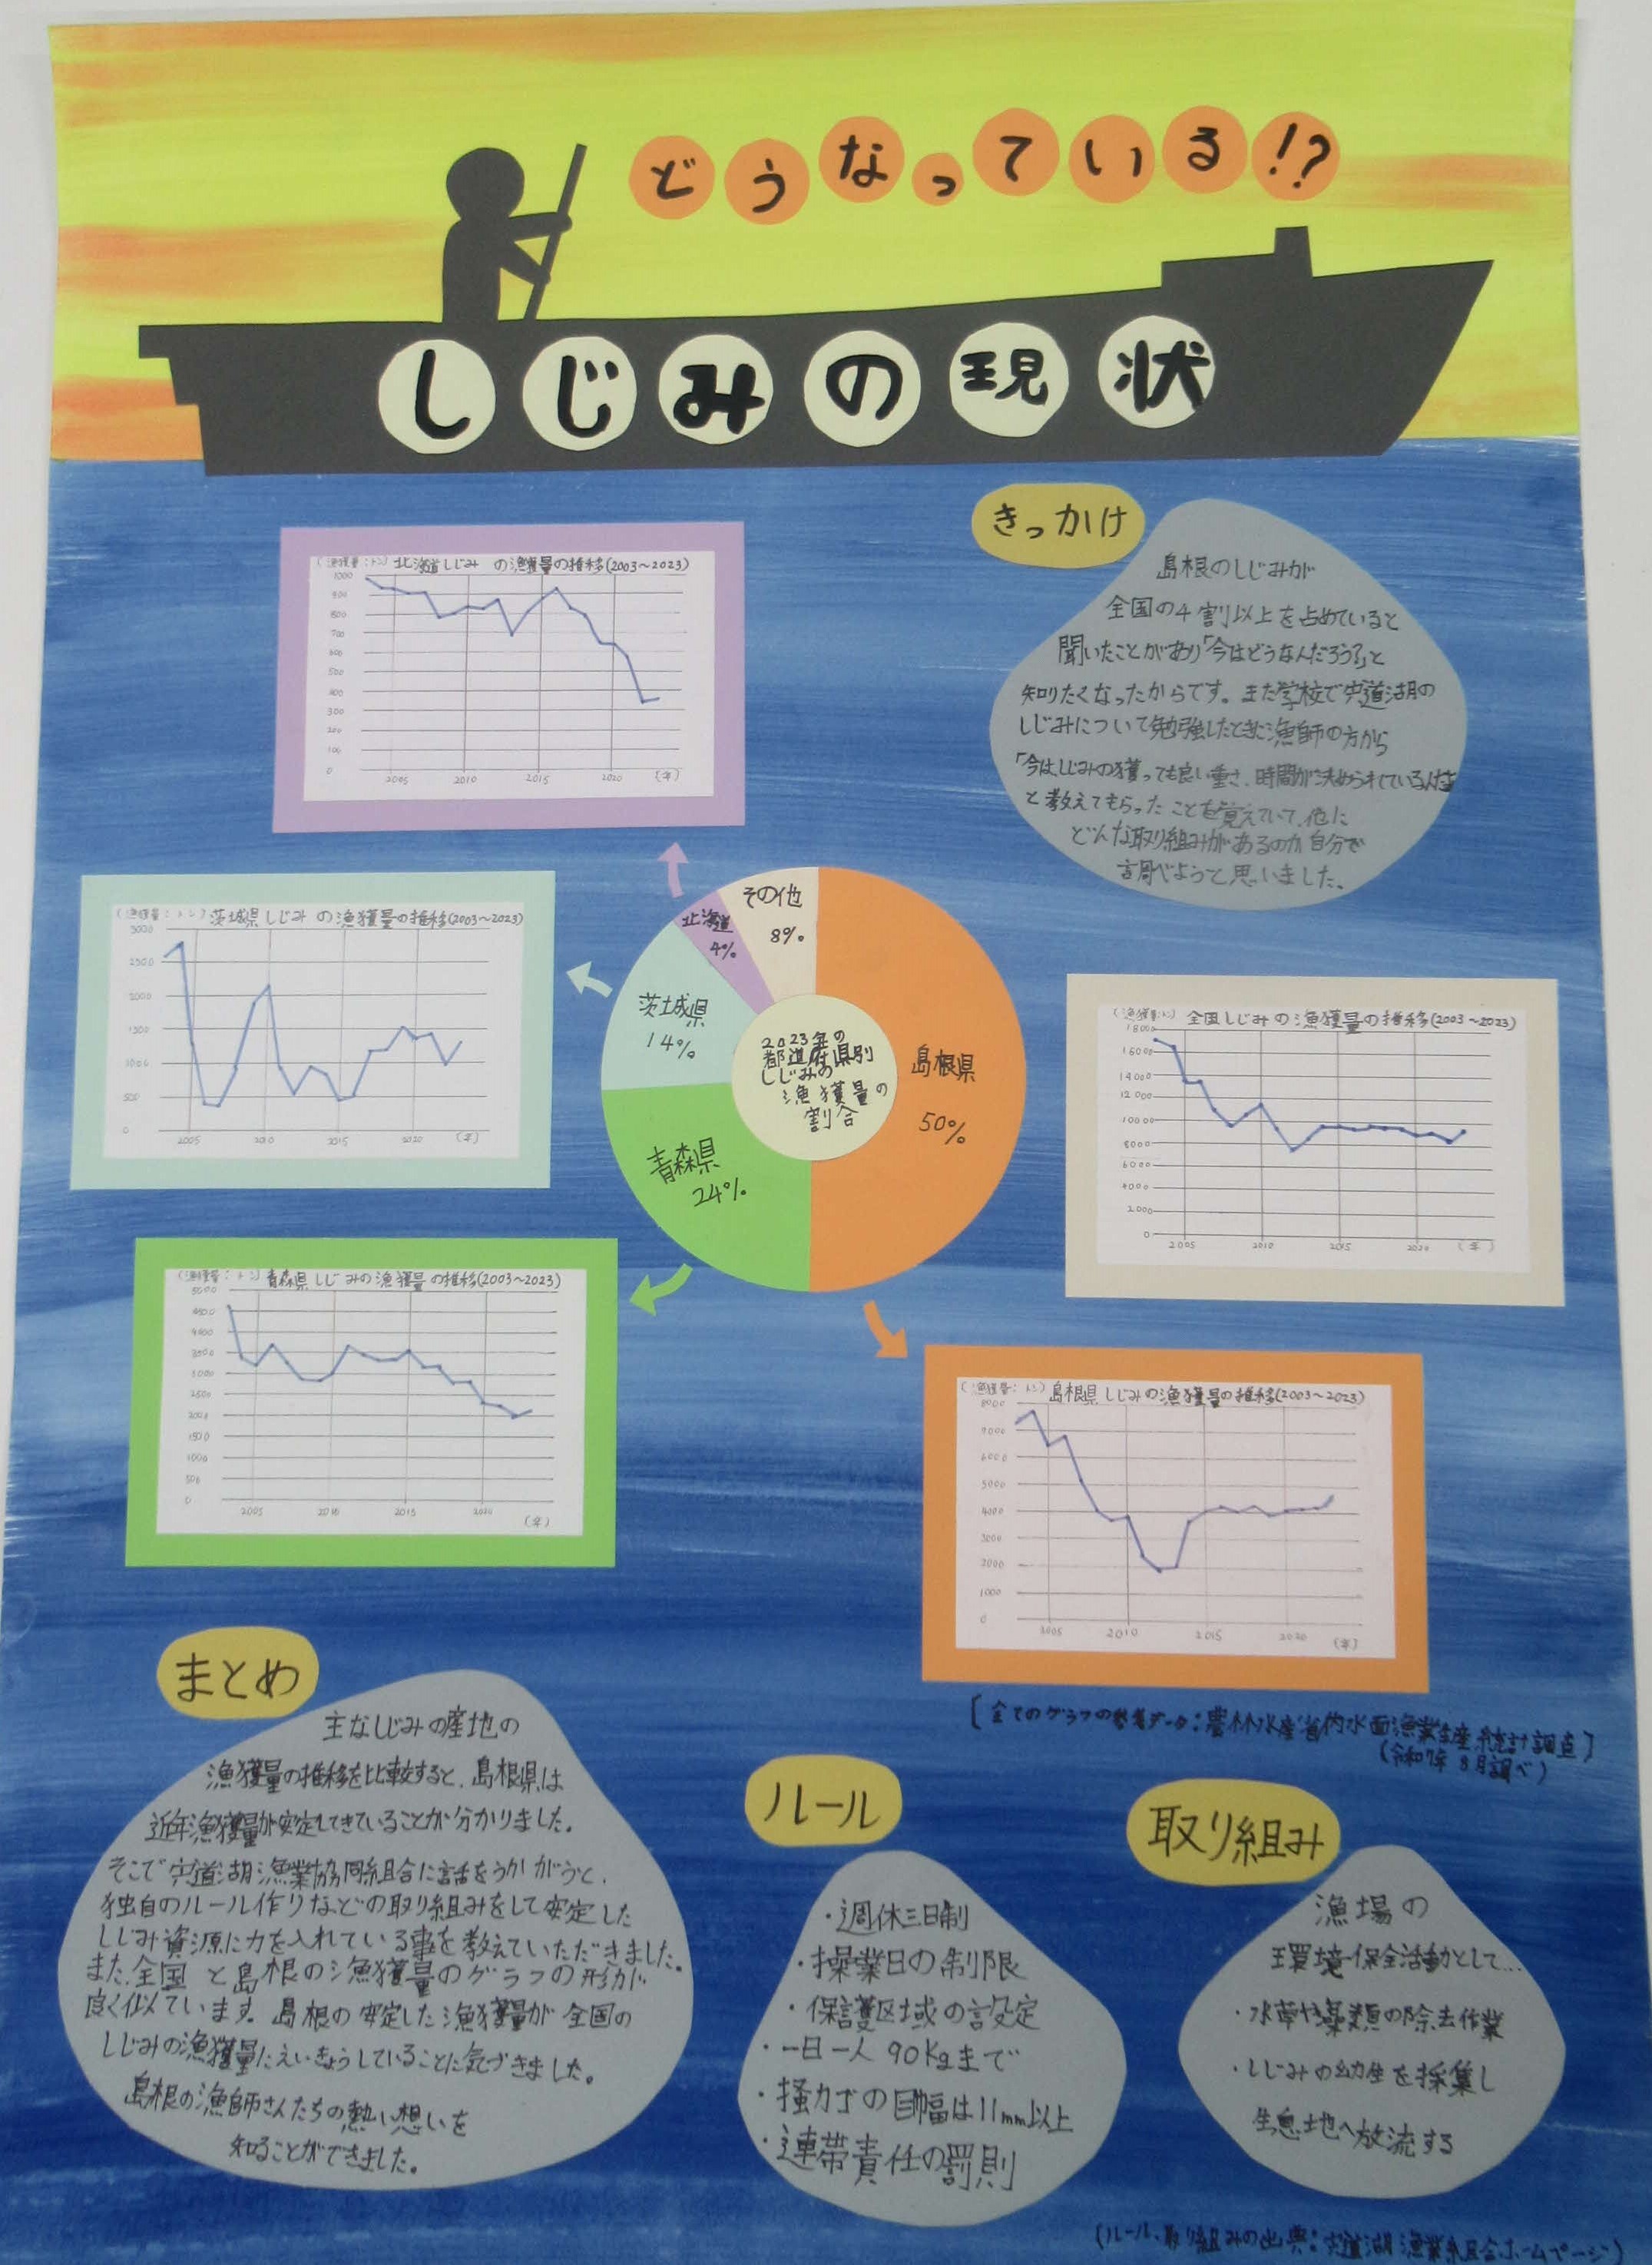 どうなっている!?
しじみの現状
きっかけ
島根のしじみが
全国の4割以上を占めていると
聞いたことがあり「今はどうなんだろう?」と
知りたくなったからです。また学校で宍道湖の
しじみについて勉強したときに漁師の方から
「今は、しじみの獲っても良い重さ、時間が決められているんだよ」
と教えてもらったことを覚えていて、他に
どんな取り組みがあるのか自分で
調べようと思いました。
(漁獲量:トン) 北海道しじみ の漁獲量の推移(2003~2023)
1000
900
800
700
600
500
400
300
200
100
0
2005 2010 2015 2020 (年)
(漁獲量:トン) 茨城県しじみ の漁獲量の推移(2003~2023)
3000
2500
2000
1500
1000
500
0
2005 2010 2015 2020 (年)
その他
8%
北海道
4%
茨城県
14%
青森県
24%
島根県
50%
2023年の
都道府県別
しじみの
漁獲量の
割合
(漁獲量:トン) 全国しじみ の漁獲量の推移(2003~2023)
18000
16000
14000
12000
10000
8000
6000
4000
2000
0
2005 2010 2015 2020 (年)
(漁獲量:トン) 青森県しじみの漁獲量の推移(2003~2023)
5000
4500
4000
3500
3000
2500
2000
1500
1000
500
0
2005 2010 2015 2020
(年)
(漁獲量:トン) 島根県しじみの漁獲量の推移(2003~2023)
8000
7000
6000
5000
4000
3000
2000
1000
0
2005 2010 2015 2020 (年)
[全てのグラフの参考データ:農林水産省内水面漁業生産統計調査]
(令和7年8月調べ)
まとめ
主なしじみの産地の
漁獲量の推移を比較すると、島根県は
近年漁獲量が安定してきていることが分かりました。
そこで宍道湖漁業協同組合に話をうかがうと、
独自のルール作りなどの取り組みをして安定した
しじみ資源に力を入れている事を教えていただきました。
また、全国と島根の漁獲量のグラフの形が
良く似ています。島根の安定した漁獲量が全国の
しじみの漁獲量にえいきょうしていることに気づきました。
島根の漁師さんたちの熱い想いを
知ることができました。
ルール
・週休三日制
・操業日の制限
・保護区域の設定
・一日一人90Kgまで
・掻カゴの目幅は11mm以上
・連帯責任の罰則
取り組み
漁場の
環境保全活動として…
・水草や藻類の除去作業
・しじみの幼生を採集し
生息地へ放流する
(ルール、取り組みの出典:宍道湖漁業組合ホームページ)